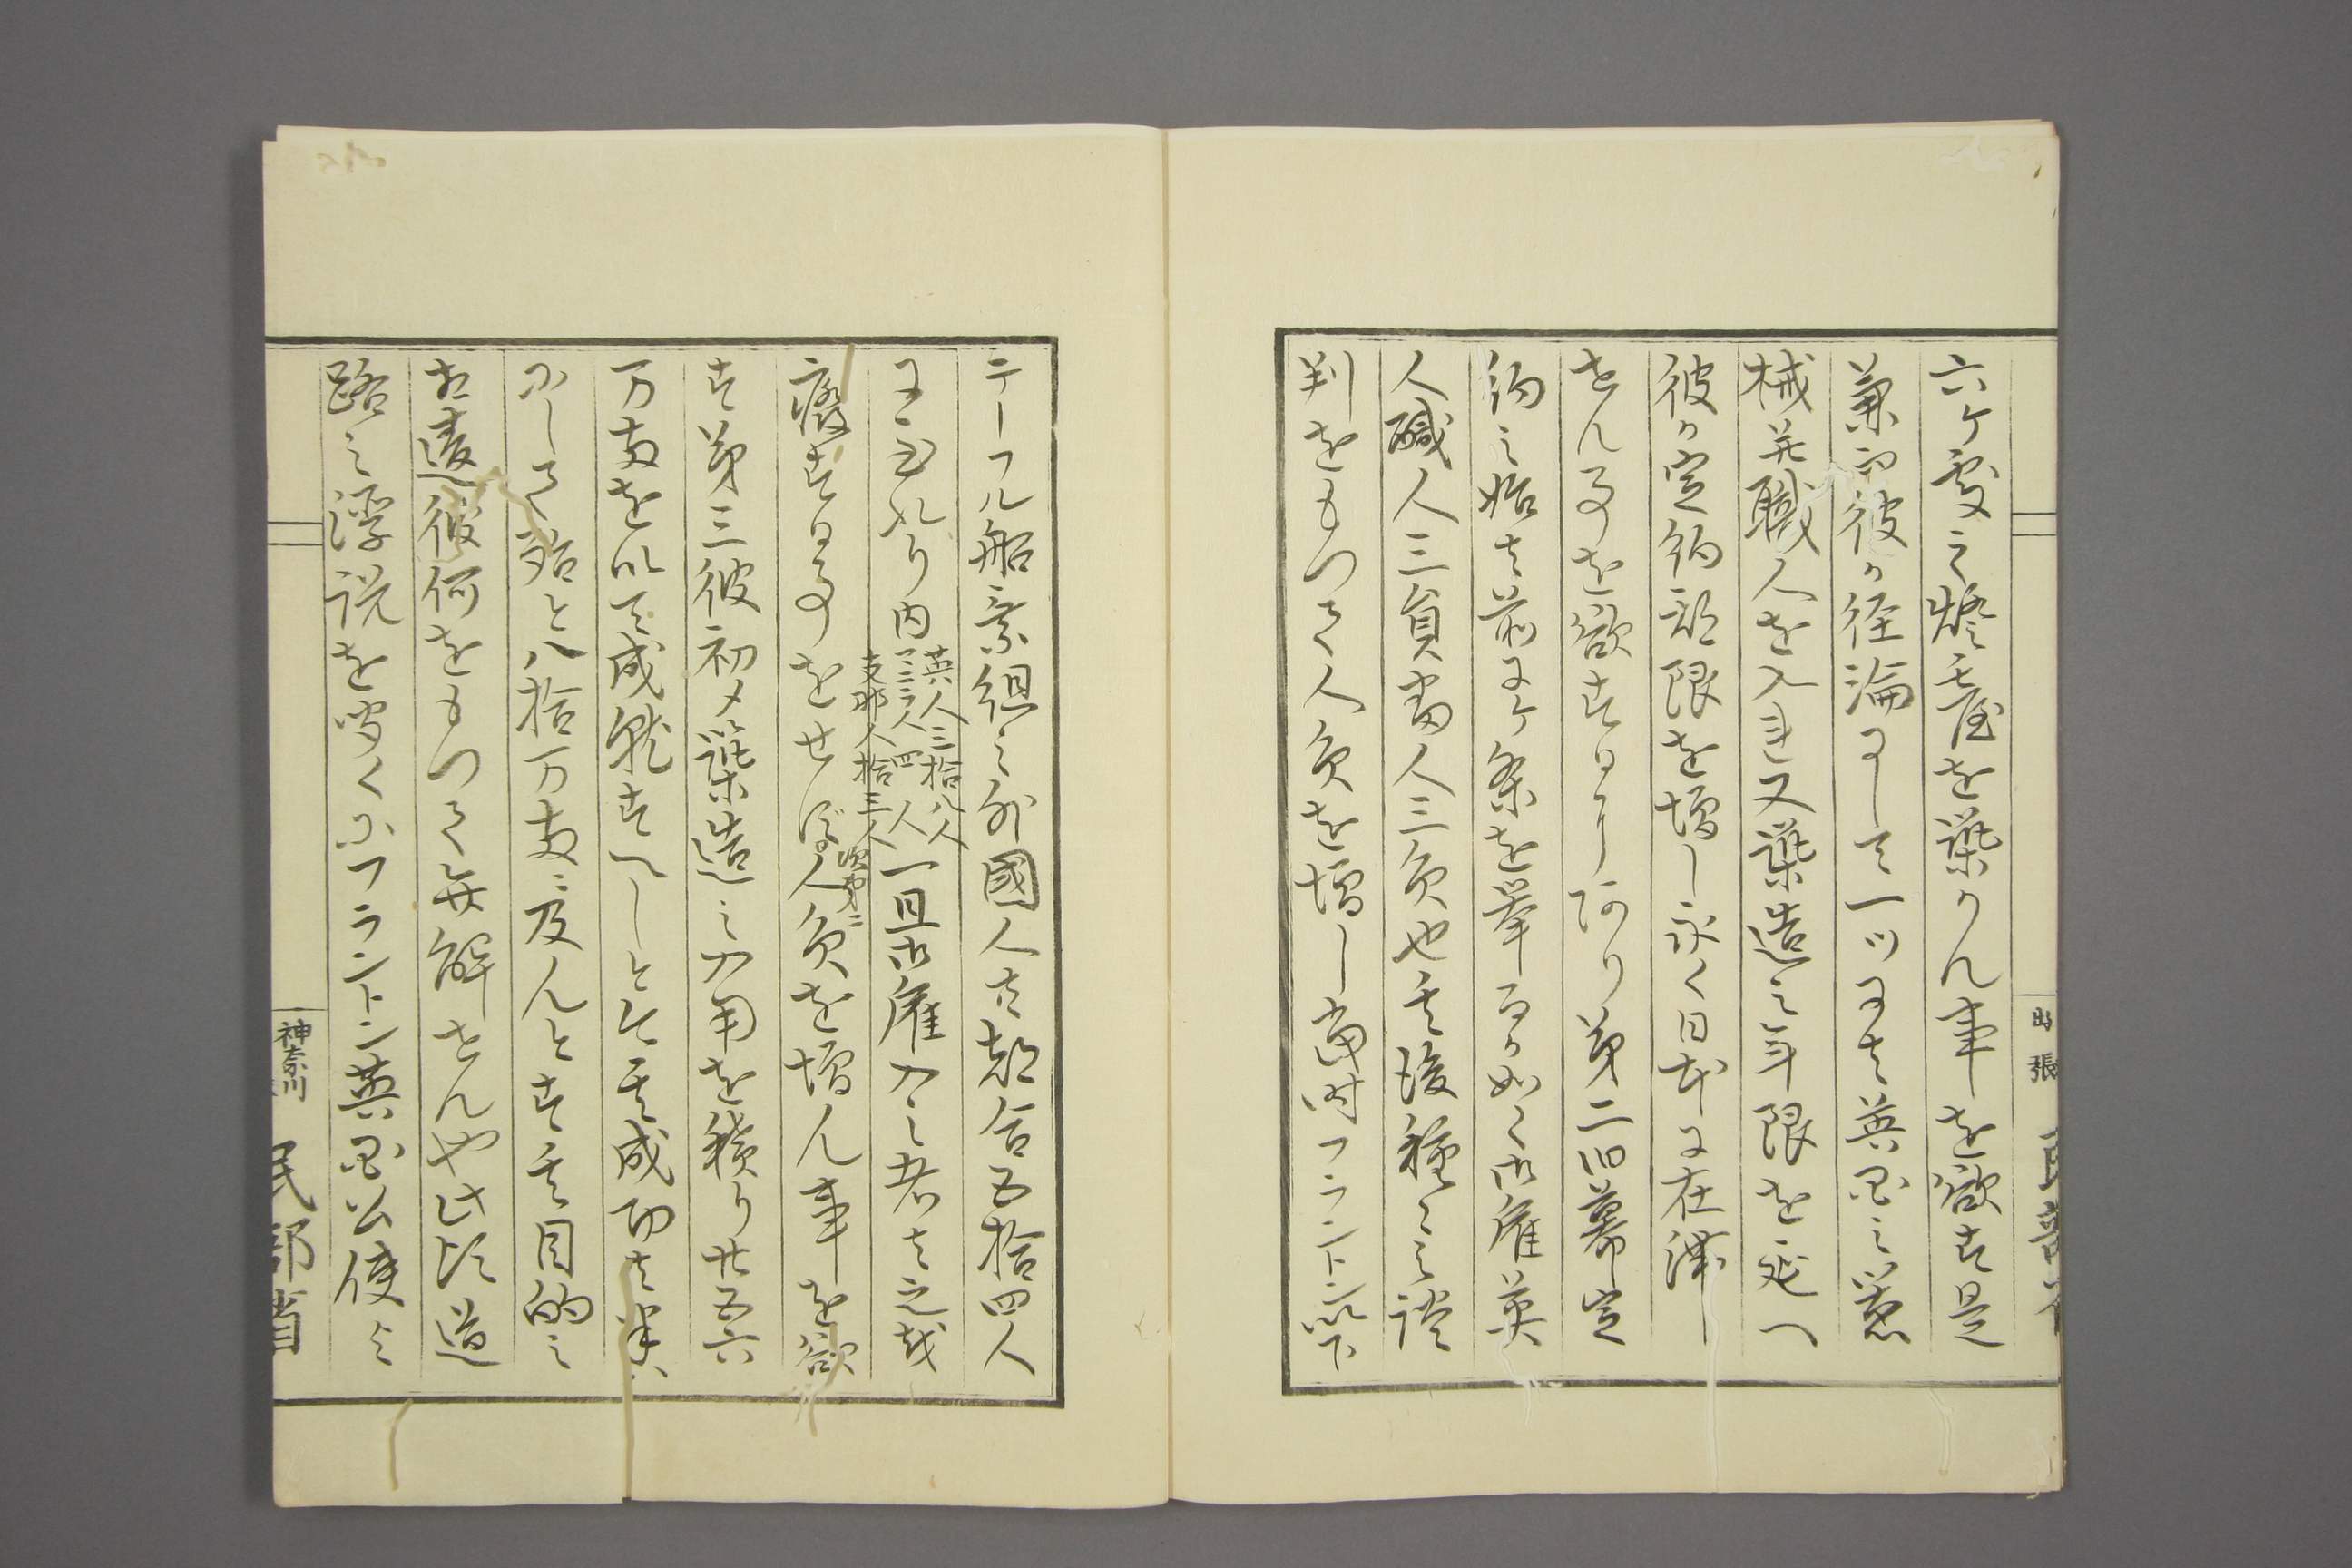 六ケ處之燈臺を築かん事を欲す是
兼而彼か経論にして一ツには英国之器
械并職人を入れ又築造之年限を延へ
彼か定約期限を増し永く日本に在留
せん事を欲する事あり第二旧幕定
約之始は前に条を挙るか如く御雇英
人職人三員当人三員也其後種々之談
判をもつて人員を増し当時フラントン以下
テーフル船乗組之外國人共都合五拾四人
に至れり内
英人三拾八人
マニラ人四人
支那人拾三人
一旦御雇入之者は之越
廃する事をせず
次第二
人員を増ん事を欲
す第三彼初メ築造之入用を積り廿五六
万両を以て成就すへしと云其成功は
にして殆と八拾万両ニ及んとす其目的之
相違彼何をもつて弁解せんや此頃道
路之浮説を聞くにフラントン英国公使と
出張
民部省
神奈川
民部省